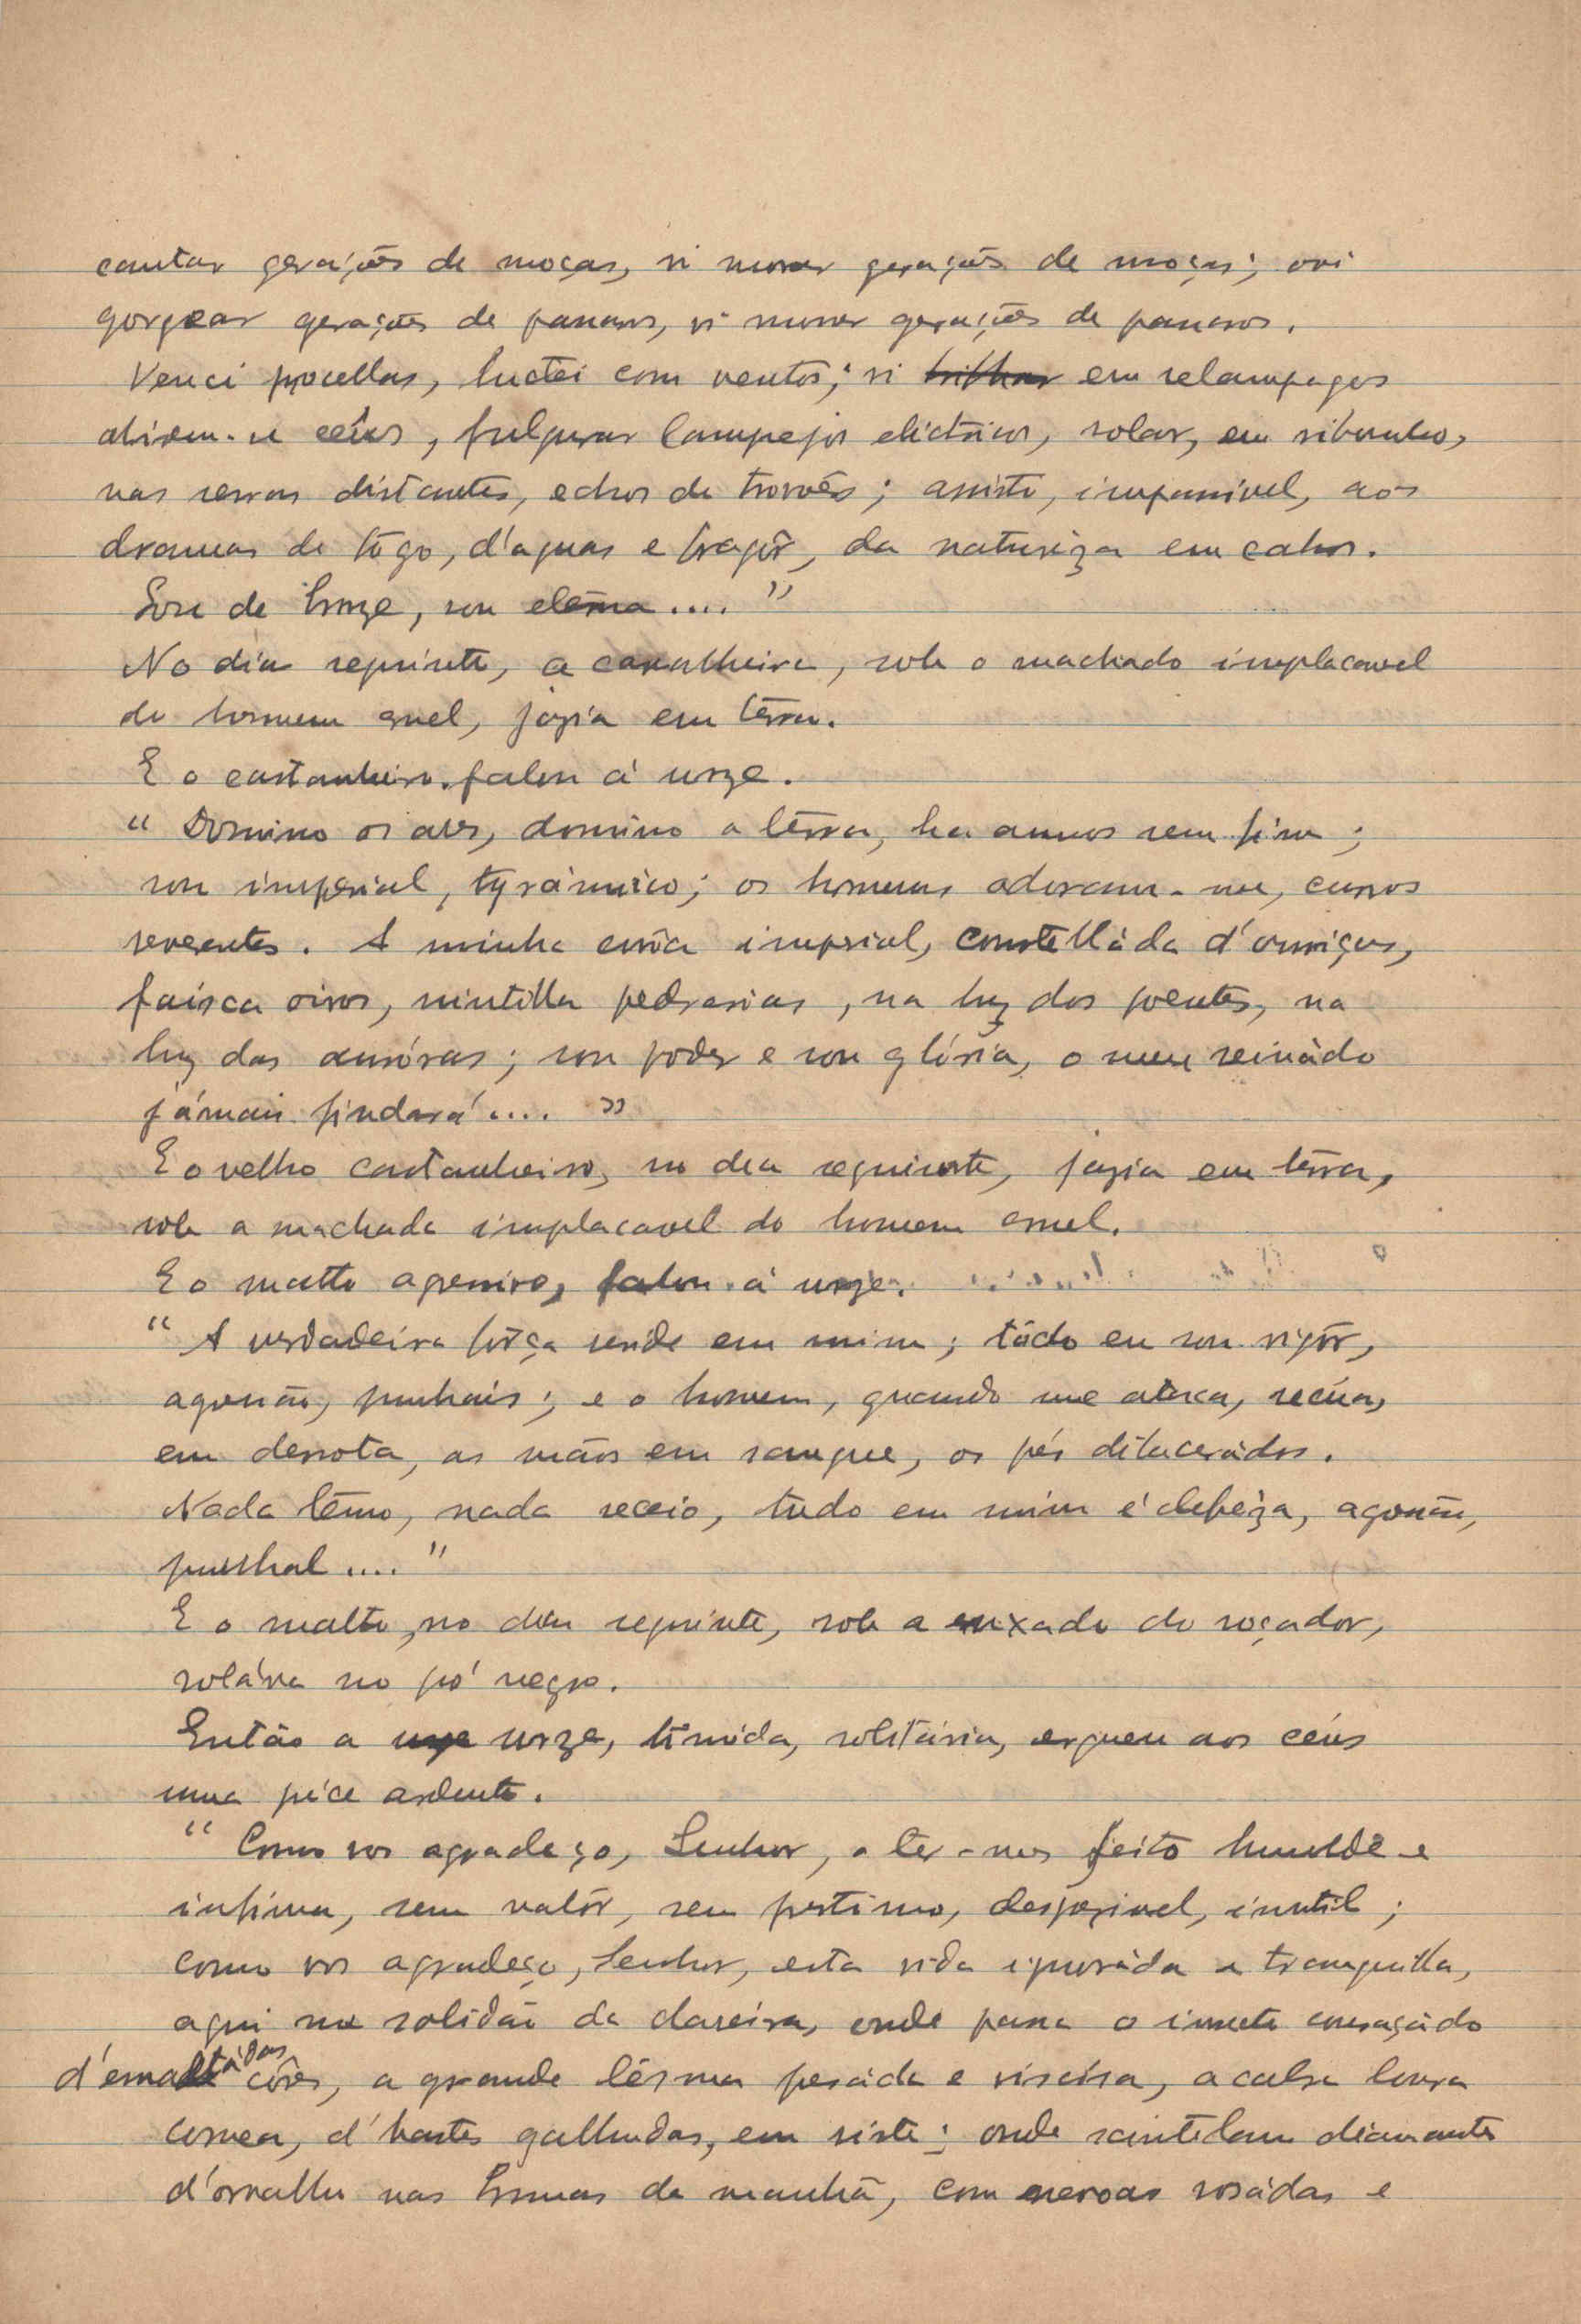 cantar gerações de moças, vi morrer gerações de moças; ouvi
gorgear gerações de passaros, vi morrer gerações de passaros.
Venci procellas, luctei com ventos; vi em relampagos
abirem-se céus, fulgurar lampejos eléctricos, rolar, em ribombo,
nas serras distantes, echos de trovões; assisto, impassivel, aos
dramas de fôgo, d'aguas e fragôr, da naturêza em cahos.
Sou de bronze, sou etérna.... "
No dia seguinte, a carvalheira, sob o machado implacavel
do homem cruel, jazia em térra.
E o castanheiro falou á urze.
" Domino os ares, domino a térra, ha annos sem fim;
sou imperial, tyrânnico; os homens adoram-me, curvos
reverentes. A minha corôa imperial, constelláda d'ouriços,
faísca oiros, scintilla pedrarias, na luz dos poentes, na
luz das auróras; sou poder e sou glória, o meu reinádo
jámais findará.... "
E o velho castanheiro, no dia seguinte, jazia em térra,
sob o machado implacavel do homem cruel.
E o matto agreste, falou á urze.
" A verdadeira fôrça reside em mim; tôdo eu sou vigôr,
aguilhão, punhais; e o homem, quando me ataca, recúa,
em derrota, as mãos em sangue, os pés dilacerádos.
Nada têmo, nada receio, tudo em mim é defêza, aguilhão,
punhal.... "
E o matto, no dia seguinte, sob a enxada do roçador,
roláva no pó negro.
Então a urze, tímida, solitária, ergueu aos céus
uma préce ardente.
" Como vos agradeço, Senhor, o ter-me feito humilde e
infima, sem valôr, sem prestimo, desprezivel, inutil;
como vos agradeço, Senhor, esta vida ignoráda e tranquilla,
aqui na solidão da clareira, onde passa o insecto couraçádo
d'esmaltádas côres, a grande lésma pesáda e viscósa, a cabra loura
cornea, d'hastes galhudas, em riste; onde scintilam diamantes
d'orvalho nas brumas da manhã, com nevoas rosádas e